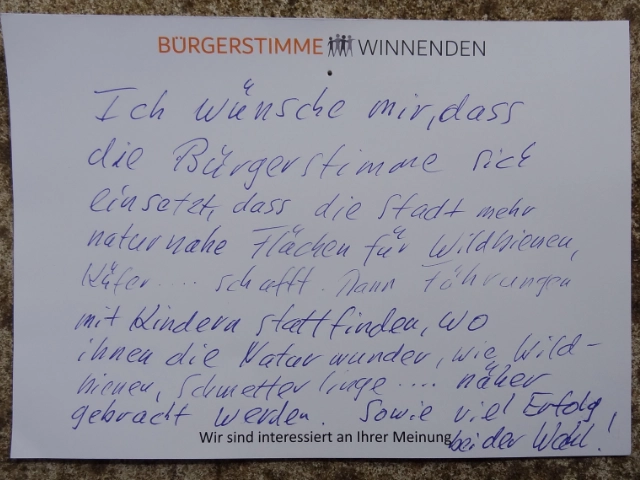 BÜRGERSTIMME WINNENDEN
Ich wünsche mir, dass
die Bürgerstimme sich
einsetzt, dass die Stadt mehr
naturnahe Flächen für Wildbienen,
Käfer.... schafft. Dann Führungen
mit Kindern stattfinden, wo
ihnen die Naturwunder, wie Wild-
bienen, Schmetterlinge .... näher
gebracht werden. Sowie viel Erfolg
bei der Wahl!
Wir sind interessiert an Ihrer Meinung